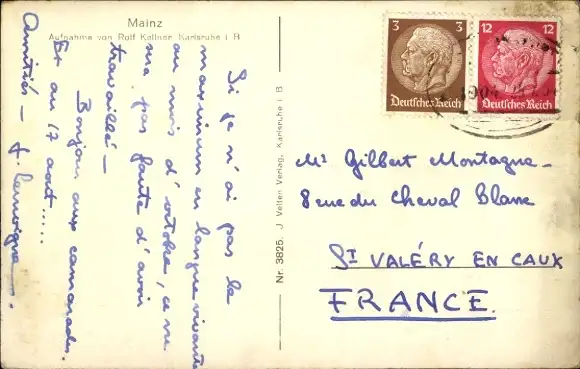 Mainz
Aufnahme von Rolf Kellner, Karlsruhe i B
Si je n'ai pas le
maximum en langue vivante
au mois d'octobre, ce ne
sera pas faute d'avoir
travaillé -
Bonjour aux camarades.
Et au 17 août.....
Amitiés -
Nr. 3825. J Velten Verlag, Karlsruhe i B
3 3
Deutsches Reich
12 12
Deutsches Reich
Mr Gilbert Montagne -
8 rue du Cheval Blanc
ST VALÉRY EN CAUX
FRANCE.